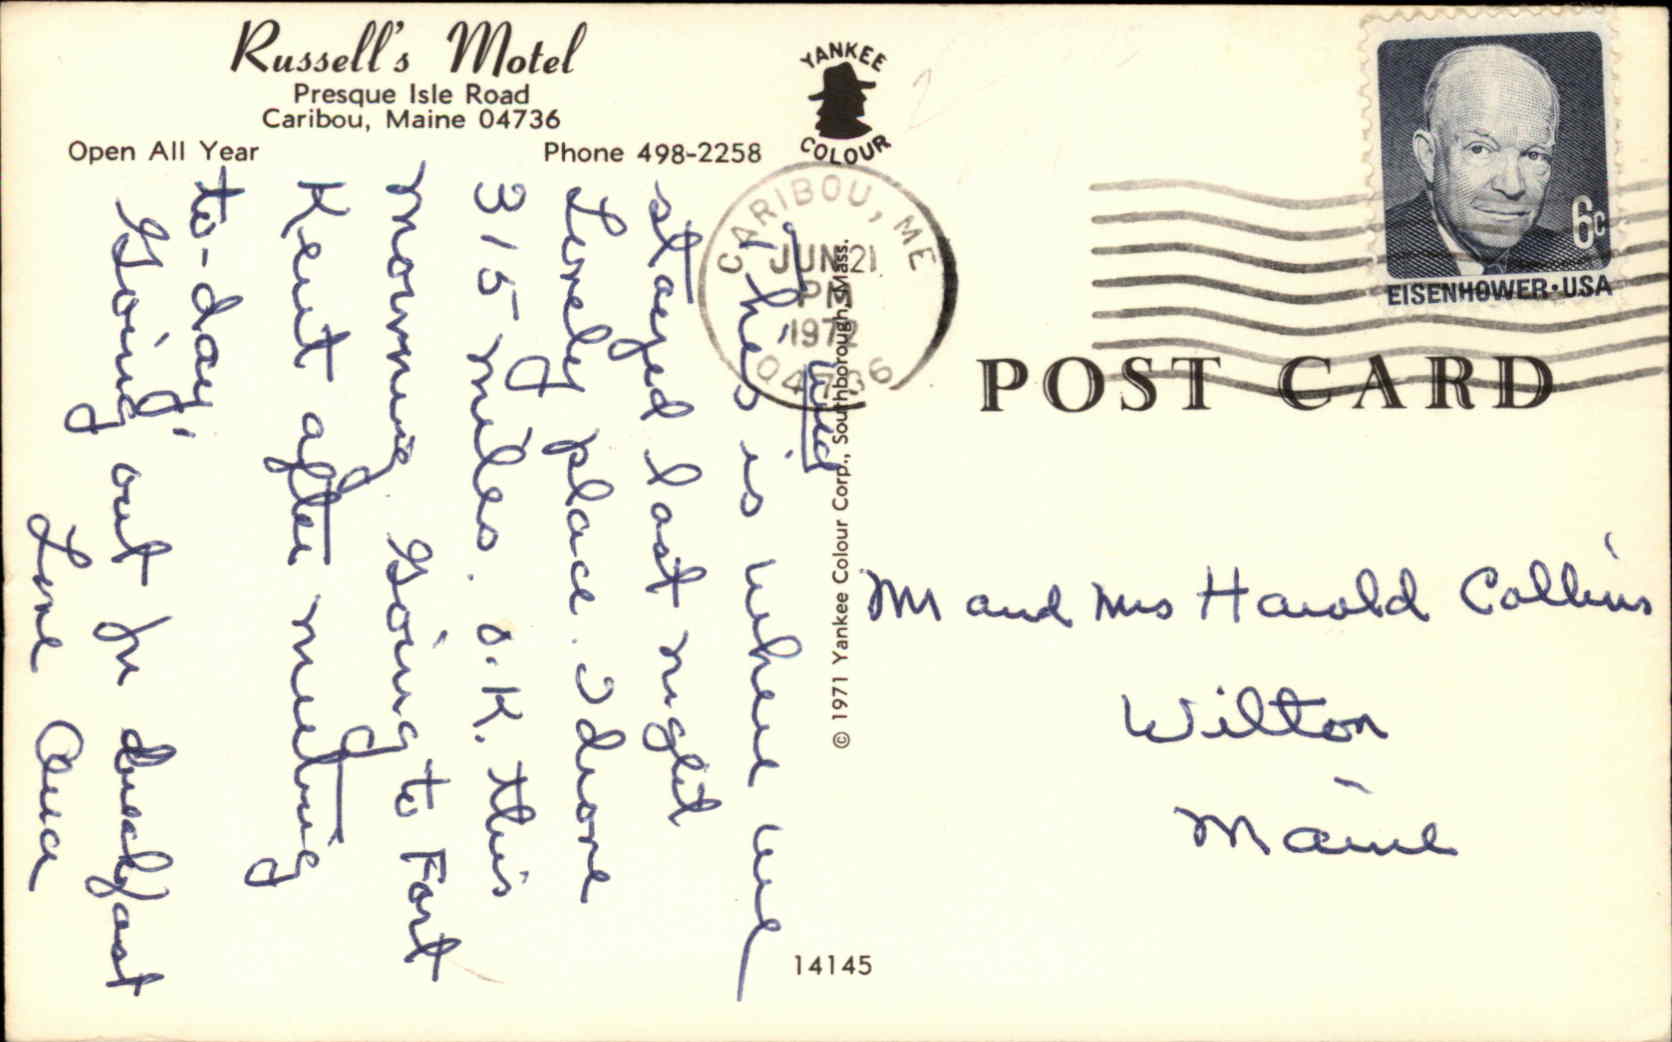 Russell's Motel
Presque Isle Road
Caribou, Maine 04736
Open All Year
Phone 498-2258
YANKEE
COLOUR
CARIBOU, ME
JUN 21
PM
1972
04736
6c
EISENHOWER·USA
POST CARD
Wed
This is where we
stayed last night
Lovely place. I drove
315 miles. O.K. this
morning Going to Fort
Kent after meeting
to-day.
Going out for breakfast
Love
Mr and Mrs Harold Collins
Wilton
Maine
© 1971 Yankee Colour Corp., Southborough, Mass.
14145